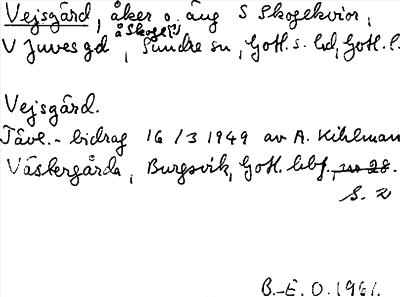 Vejsgård, åker o. äng S Skogekvior,
å Skoge[?]
V Juves gd, Sundre sn, Gotl. s. hd, Gotl. l.
Vejsgård.
Tävl.-bidrag 16/3 1949 av A. Kihlman
Västergårda, Burgsvik, Gotl. hbf., nr 28.
S. 2
B.-E. O. 1961.